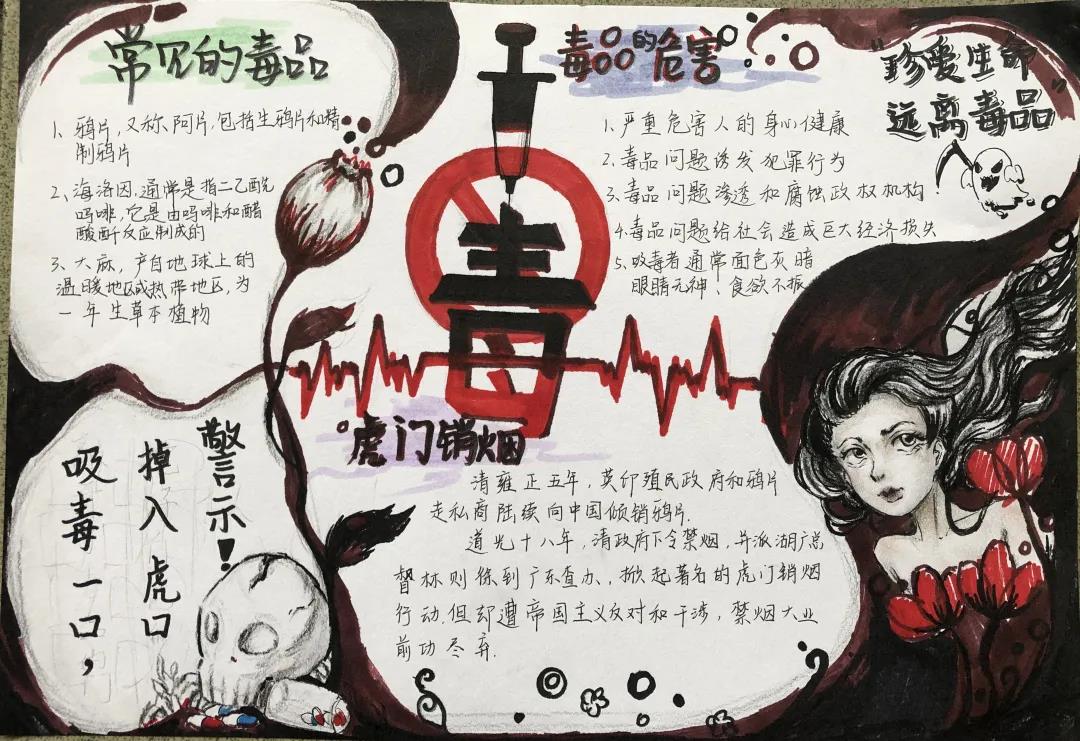 常见的毒品
1、鸦片，又称、阿片，包括生鸦片和精
制鸦片
2、海洛因，通常是指二乙酰
吗啡，它是由吗啡和醋
酸酐反应制成的
3、大麻，产自地球上的
温暖地区或热带地区，为
一年生草本植物
毒品的危害
1.严重危害人的身心健康
2.毒品问题诱发犯罪行为
3.毒品问题渗透和腐蚀政权机构
4.毒品问题给社会造成巨大经济损失
5.吸毒者通常面色灰暗
眼睛无神、食欲不振
"珍爱生命
远离毒品"
毒
虎门销烟
清雍正五年，英印殖民政府和鸦片
走私商陆续向中国倾销鸦片.
道光十八年，清政府下令禁烟，并派湖广总
督林则徐到广东查办，掀起著名的虎门销烟
行动.但却遭帝国主义反对和干涉，禁烟大业
前功尽弃.
警示！
吸毒一口，
掉入虎口